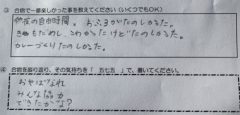 ③ 合宿で一番楽しかった事を教えてください(いくつでもOK)
夜の自由時間。おふろがたのしかった。
きもだめし、こわかったけどたのしかった。
カレーづくりたのしかった。
④ 合宿を振り返り、その気持ちを「五七五」で、書いてください。
おやばなれ
みんなが
できたかな?